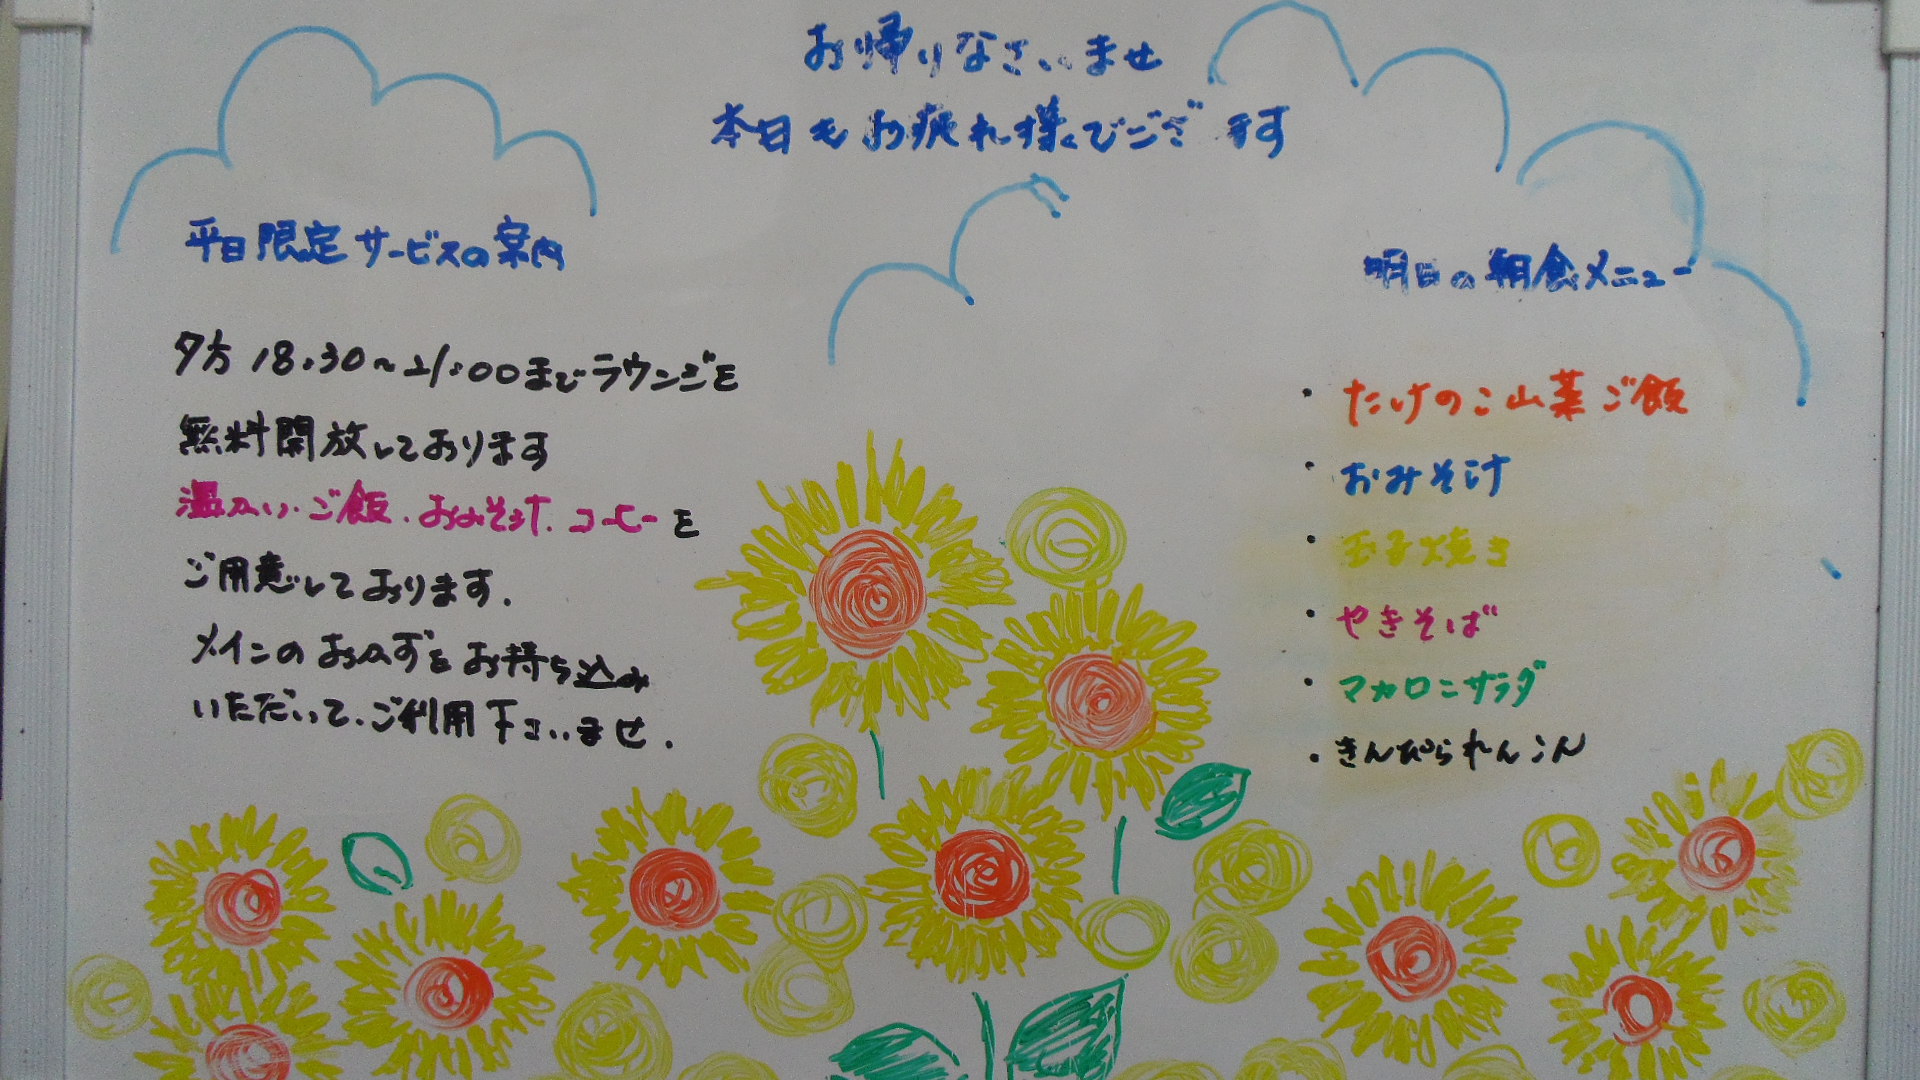 お帰りなさいませ
本日もお疲れ様でございます
平日限定サービスの案内
夕方18:30～21:00までラウンジを
無料開放しております
温かい・ご飯・おみそ汁・コーヒーを
ご用意しております。
メインのおかずをお持ち込み
いただいて、ご利用下さいませ。
明日の朝食メニュー
・たけのこ山菜ご飯
・おみそ汁
・玉子焼き
・やきそば
・マカロニサラダ
・きんぴられんこん